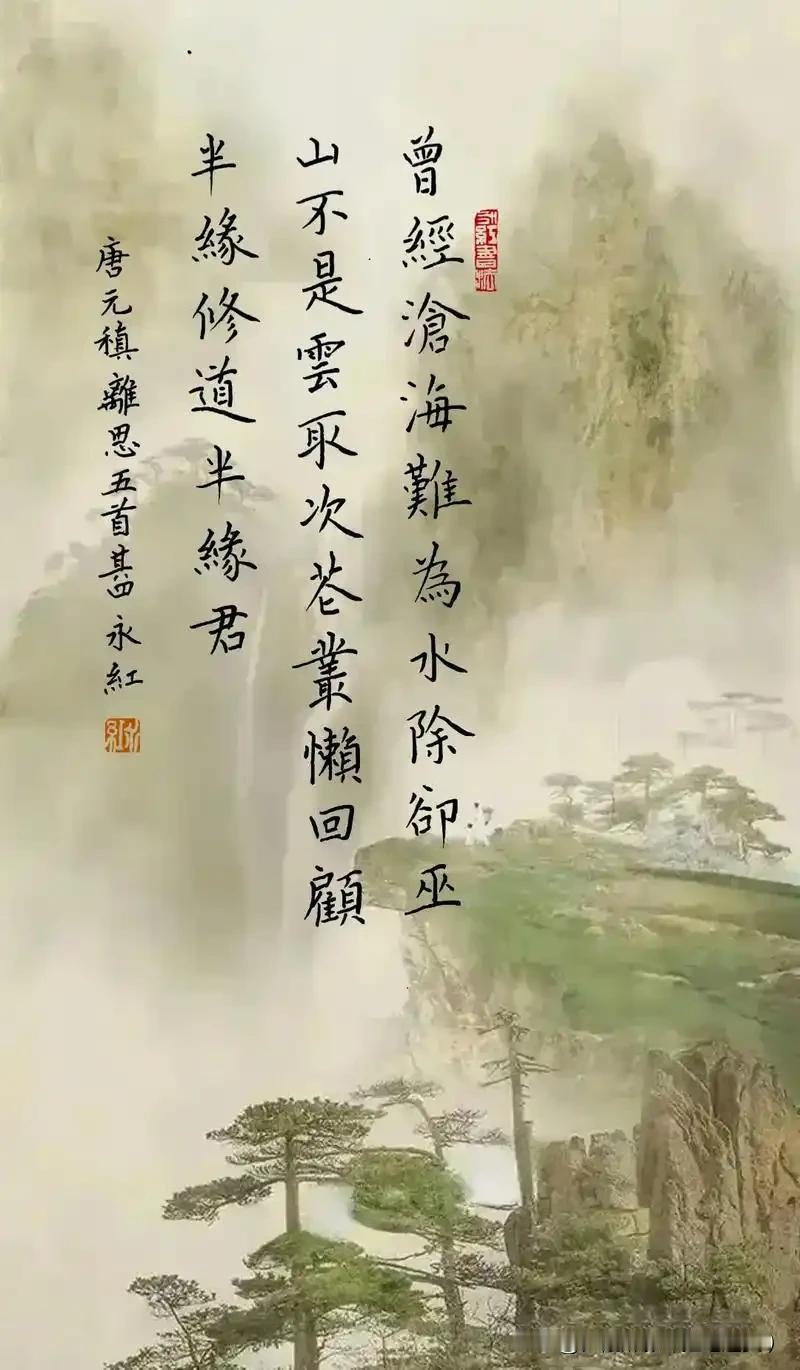 曾經滄海難為水除卻巫
山不是雲取次花叢懶回顧
半緣修道半緣君
唐元稹離思五首其四永紅
永紅